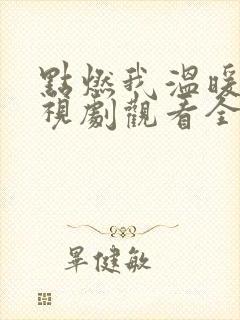 點燃我溫暖
視劇觀看全
畢健敏